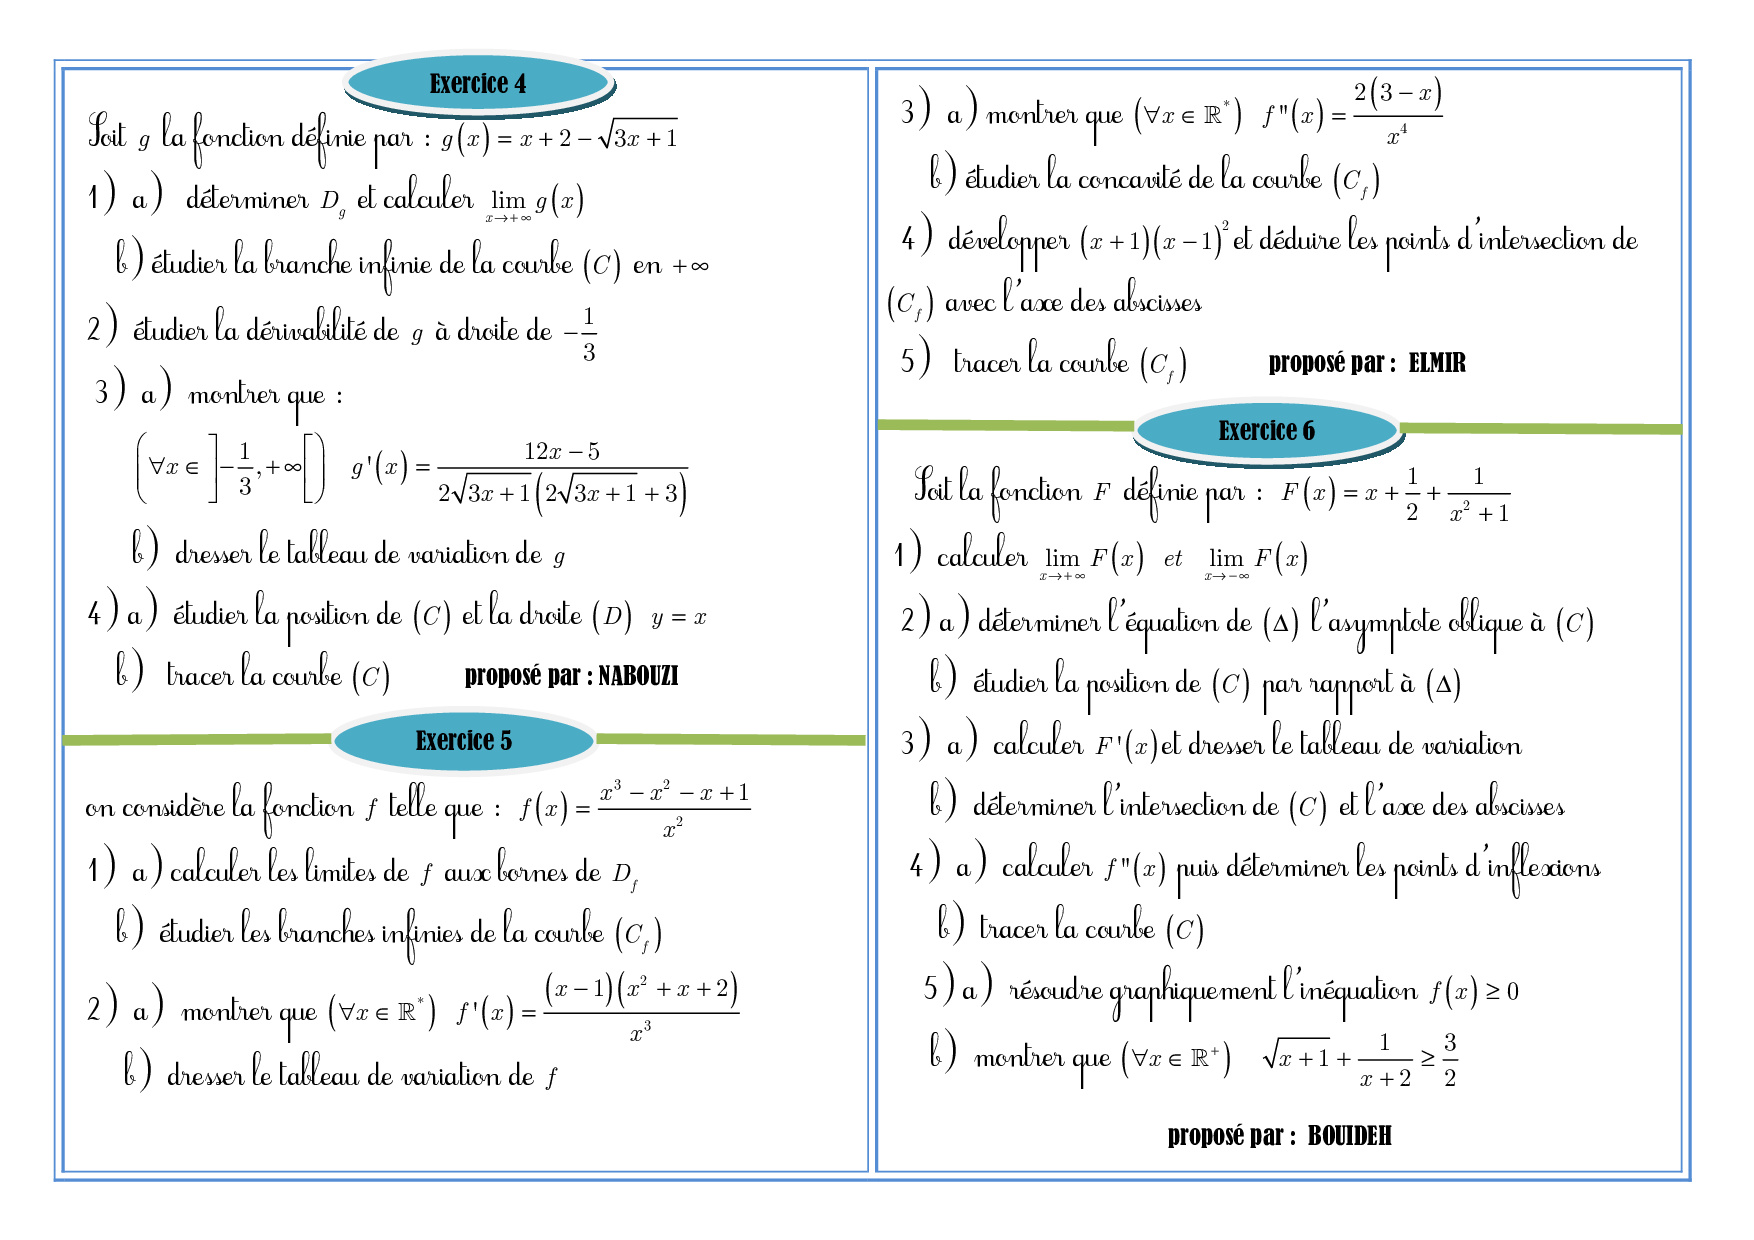 Exercice 4
Soit g la fonction définie par : g(x) = x + 2 − √(3x + 1)
1) a) déterminer D_g et calculer lim_{x→+∞} g(x)
b) étudier la branche infinie de la courbe (C) en +∞
2) étudier la dérivabilité de g à droite de −1/3
3) a) montrer que :
(∀x ∈ ]−1/3, +∞[) g'(x) = (12x − 5)/(2√(3x + 1)(2√(3x + 1) + 3))
b) dresser le tableau de variation de g
4) a) étudier la position de (C) et la droite (D) y = x
b) tracer la courbe (C) proposé par : NABOUZI
Exercice 5
on considère la fonction f telle que : f(x) = (x³ − x² − x + 1)/x²
1) a) calculer les limites de f aux bornes de D_f
b) étudier les branches infinies de la courbe (C_f)
2) a) montrer que (∀x ∈ ℝ*) f'(x) = (x − 1)(x² + x + 2)/x³
b) dresser le tableau de variation de f
3) a) montrer que (∀x ∈ ℝ*) f"(x) = 2(3 − x)/x⁴
b) étudier la concavité de la courbe (C_f)
4) développer (x + 1)(x − 1)² et déduire les points d'intersection de
(C_f) avec l'axe des abscisses
5) tracer la courbe (C_f) proposé par : ELMIR
Exercice 6
Soit la fonction F définie par : F(x) = x + 1/2 + 1/(x² + 1)
1) calculer lim_{x→+∞} F(x) et lim_{x→−∞} F(x)
2) a) déterminer l'équation de (Δ) l'asymptote oblique à (C)
b) étudier la position de (C) par rapport à (Δ)
3) a) calculer F'(x) et dresser le tableau de variation
b) déterminer l'intersection de (C) et l'axe des abscisses
4) a) calculer f"(x) puis déterminer les points d'inflexions
b) tracer la courbe (C)
5) a) résoudre graphiquement l'inéquation f(x) ≥ 0
b) montrer que (∀x ∈ ℝ⁺) √(x + 1) + 1/(x + 2) ≥ 3/2
proposé par : BOUIDEH